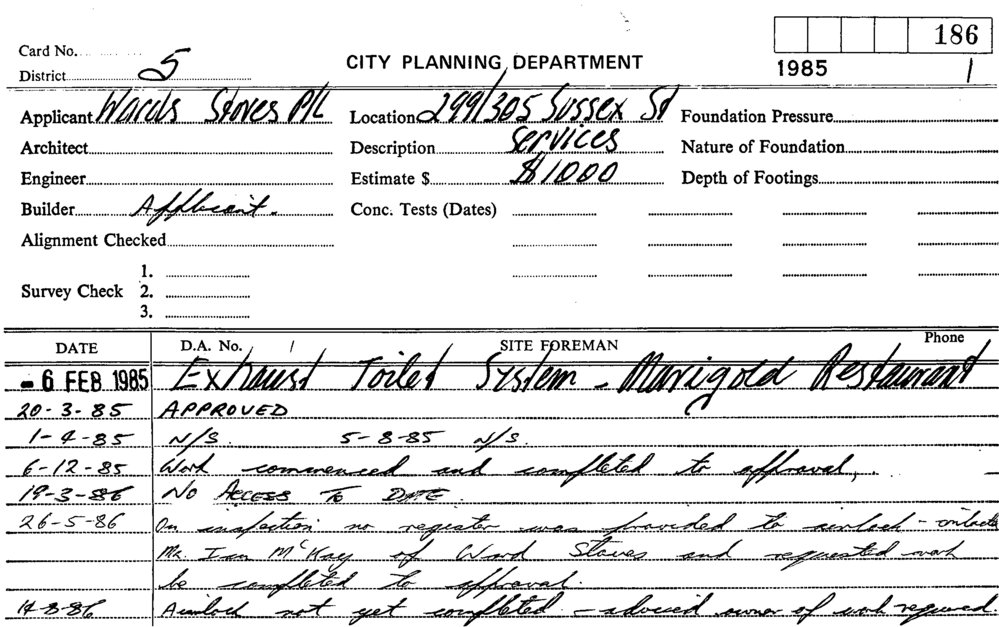 Card No.
186
District 5
CITY PLANNING DEPARTMENT
1985
1
Applicant Wards Stoves P/L
Location 299/305 Sussex St
Foundation Pressure
Architect
Description Services
Nature of Foundation
Engineer
Estimate $ $1000
Depth of Footings
Builder Applicant.
Conc. Tests (Dates)
Alignment Checked
1.
Survey Check 2.
3.
DATE D.A. No. / SITE FOREMAN Phone
- 6 FEB 1985 Exhaust Toilet System - Marigold Restaurant
20-3-85 APPROVED
1-4-85 N/S. 5-8-85 N/S.
6-12-85 Work commenced and completed to approval,
19-3-86 NO ACCESS TO DATE.
26-5-86 On inspection no register was provided to airlock - contacted
Mr. Ian McKay of Ward Stoves and requested work
be completed to approval.
14-8-86 Airlock not yet completed - advised owner of work required.